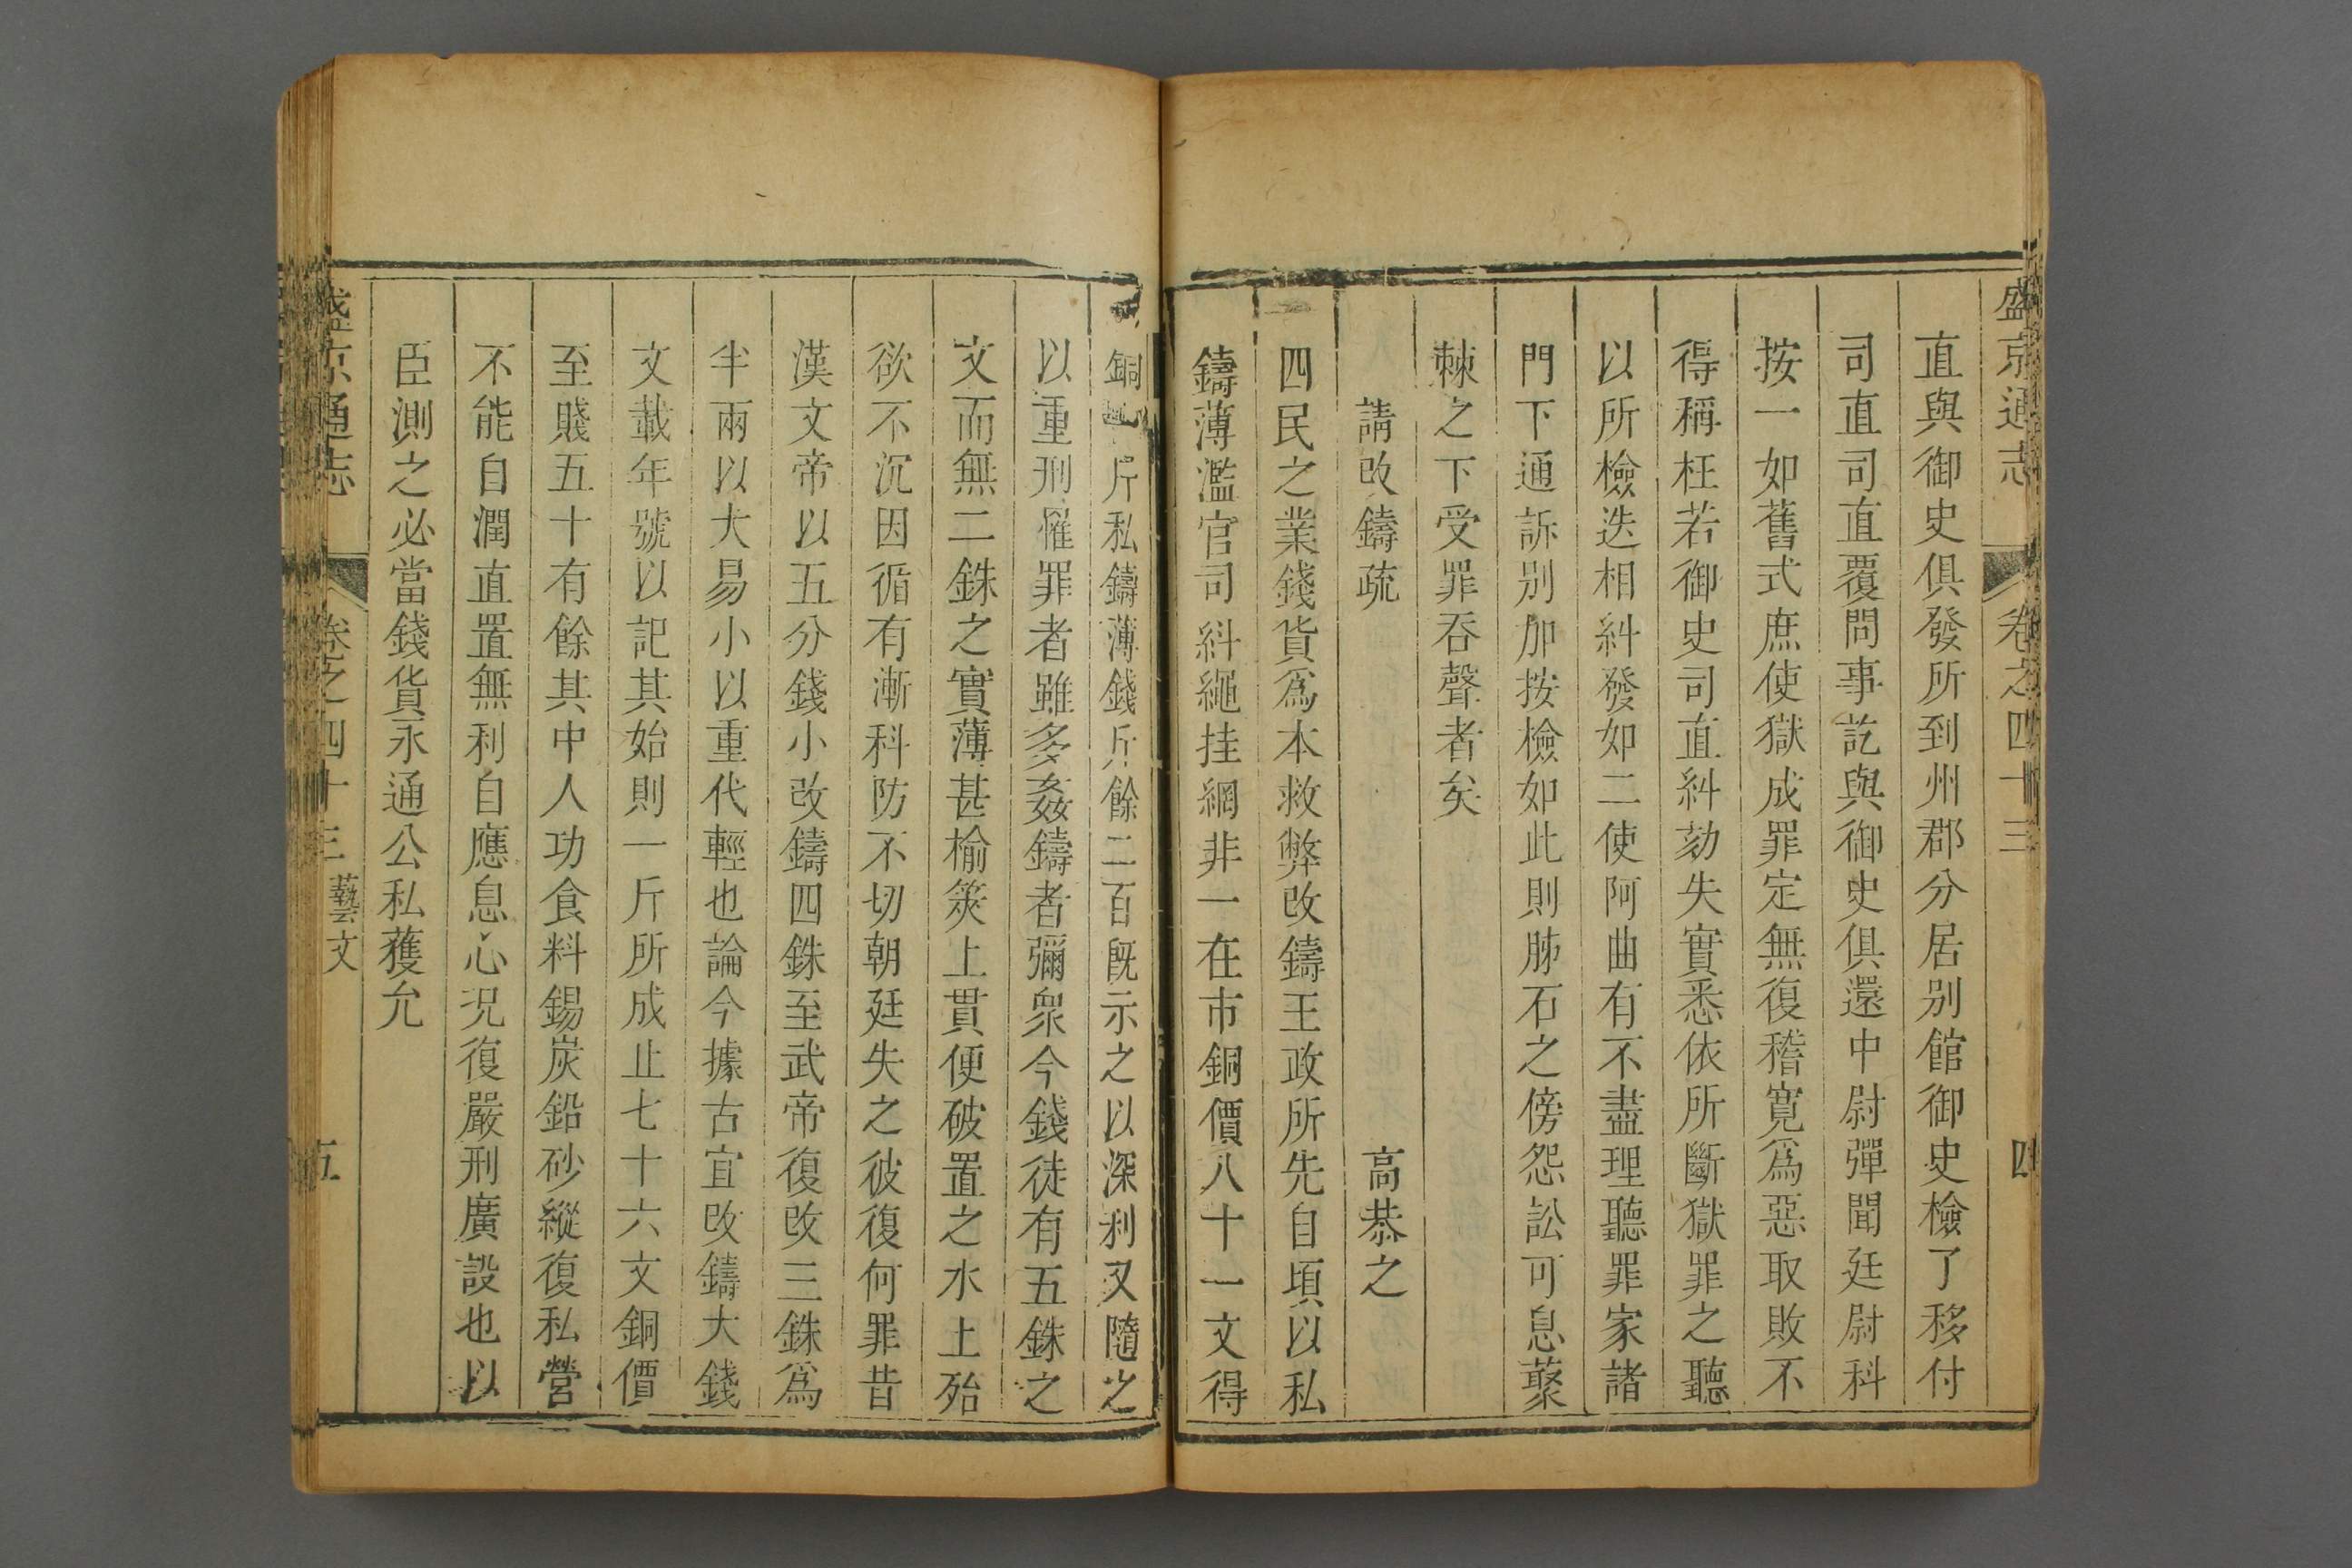 盛京通志 卷之四十三 四
直與御史俱發所到州郡分居别館御史檢了移付
司直司直覆問事訖與御史俱還中尉彈聞廷尉科
按一如舊式庶使獄成罪定無復稽寛爲惡取敗不
得稱枉若御史司直糾劾失實悉依所斷獄罪之聽
以所檢迭相糾發如二使阿曲有不盡理聽罪家諸
門下通訴别加按檢如此則肺石之傍怨訟可息藂
棘之下受罪吞聲者矣
請改鑄疏 高恭之
四民之業錢貨爲本救弊改鑄王政所先自頃以私
鑄薄濫官司糾繩挂網非一在市銅價八十一文得
銅一斤私鑄薄錢斤餘二百旣示之以深利又隨之
以重刑罹罪者雖多姦鑄者彌衆今錢徒有五銖之
文而無二銖之實薄甚榆筴上貫便破置之水上殆
欲不沉因循有漸科防不切朝廷失之彼復何罪昔
漢文帝以五分錢小改鑄四銖至武帝復改三銖爲
半兩以大易小以重代輕也論今據古宜改鑄大錢
文載年號以記其始則一斤所成止七十六文銅價
至賤五十有餘其中人功食料錫炭鉛砂縱復私營
不能自潤直置無利自應息心况復嚴刑廣設也以
臣測之必當錢貨永通公私獲允
盛京通志 卷之四十三 藝文 五